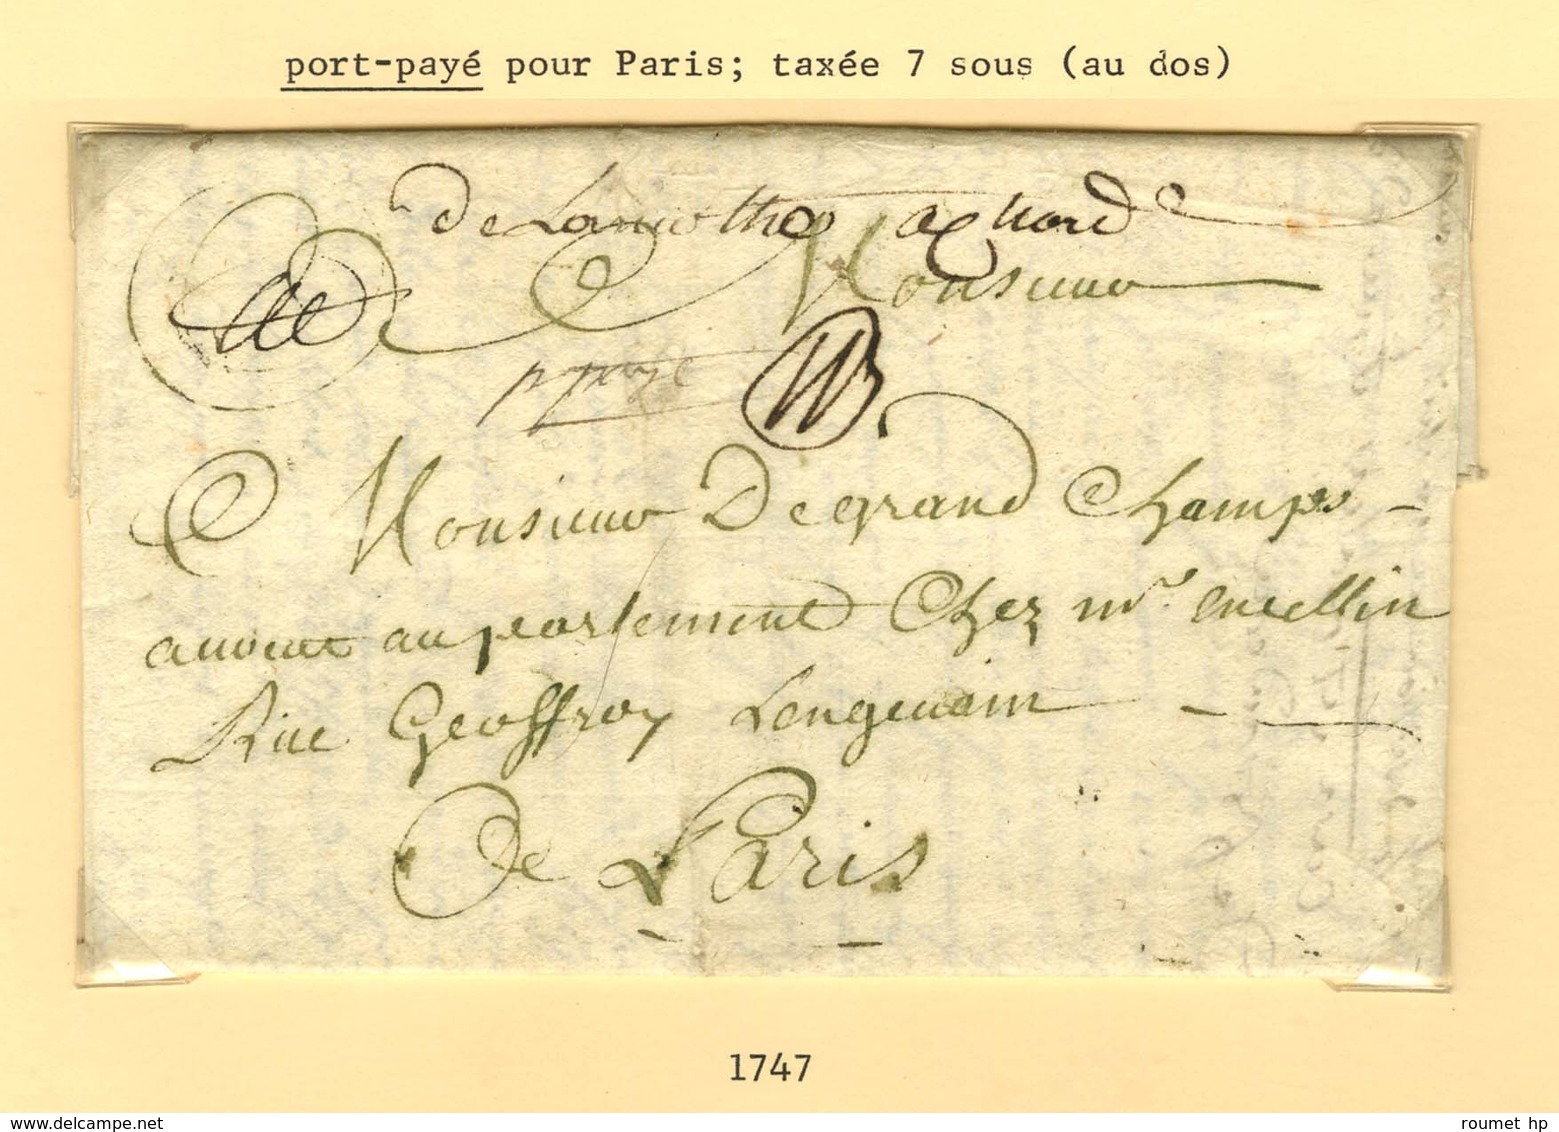 port-payé pour Paris; taxée 7 sous (au dos)
de Lamothe achard
Monsieur
p paye
Monsieur Degrand Champs
avocat au parlement Chez mr.
Rue Geoffroy Lengevain
De Paris
1747
roumet hp